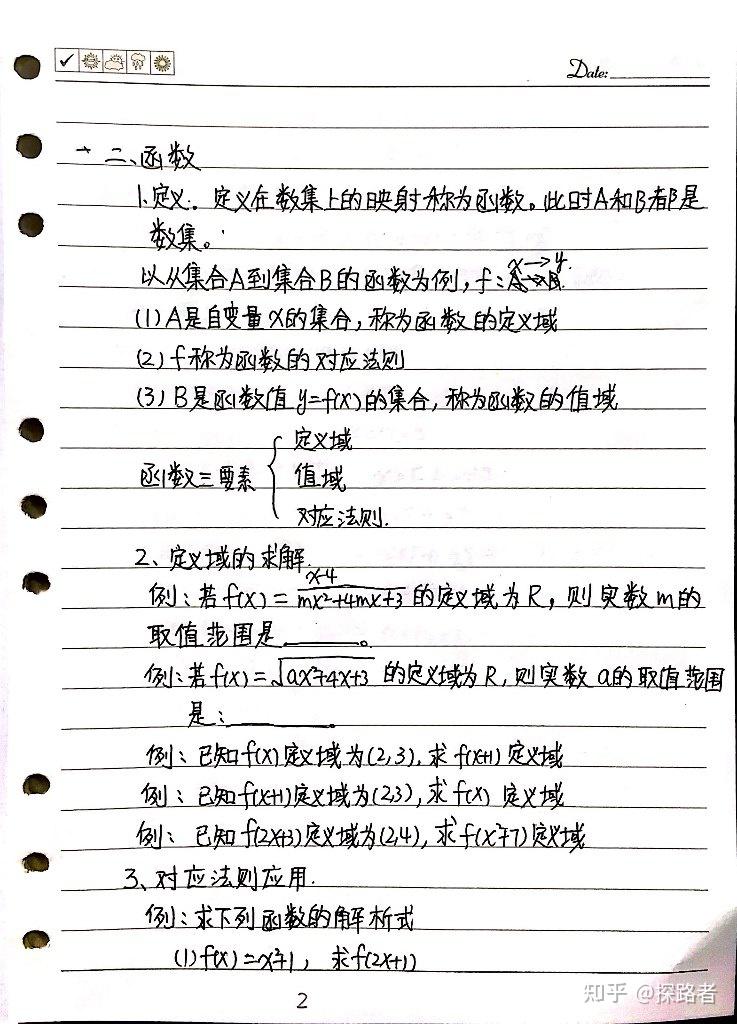 Date:
一 二、函数
1.定义. 定义在数集上的映射称为函数。此时A和B都是
数集。
以从集合A到集合B的函数为例, f: x→y.
(1) A是自变量x的集合, 称为函数的定义域
(2) f称为函数的对应法则
(3) B是函数值 y=f(x) 的集合, 称为函数的值域
函数三要素 { 定义域
值域
对应法则.
2、定义域的求解.
例: 若 f(x) = (x-4)/(mx²+4mx+3) 的定义域为R, 则实数m的
取值范围是______。
例: 若 f(x) = √(ax²+4x+3) 的定义域为R, 则实数a的取值范围
是: ______
例: 已知f(x)定义域为(2,3), 求f(x+1)定义域
例: 已知f(x+1)定义域为(2,3), 求f(x) 定义域
例: 已知f(2x+3)定义域为(2,4), 求f(x²+7)定义域
3、对应法则应用.
例: 求下列函数的解析式
(1) f(x)=x²+1, 求f(2x+1)
2
知乎 @探路者